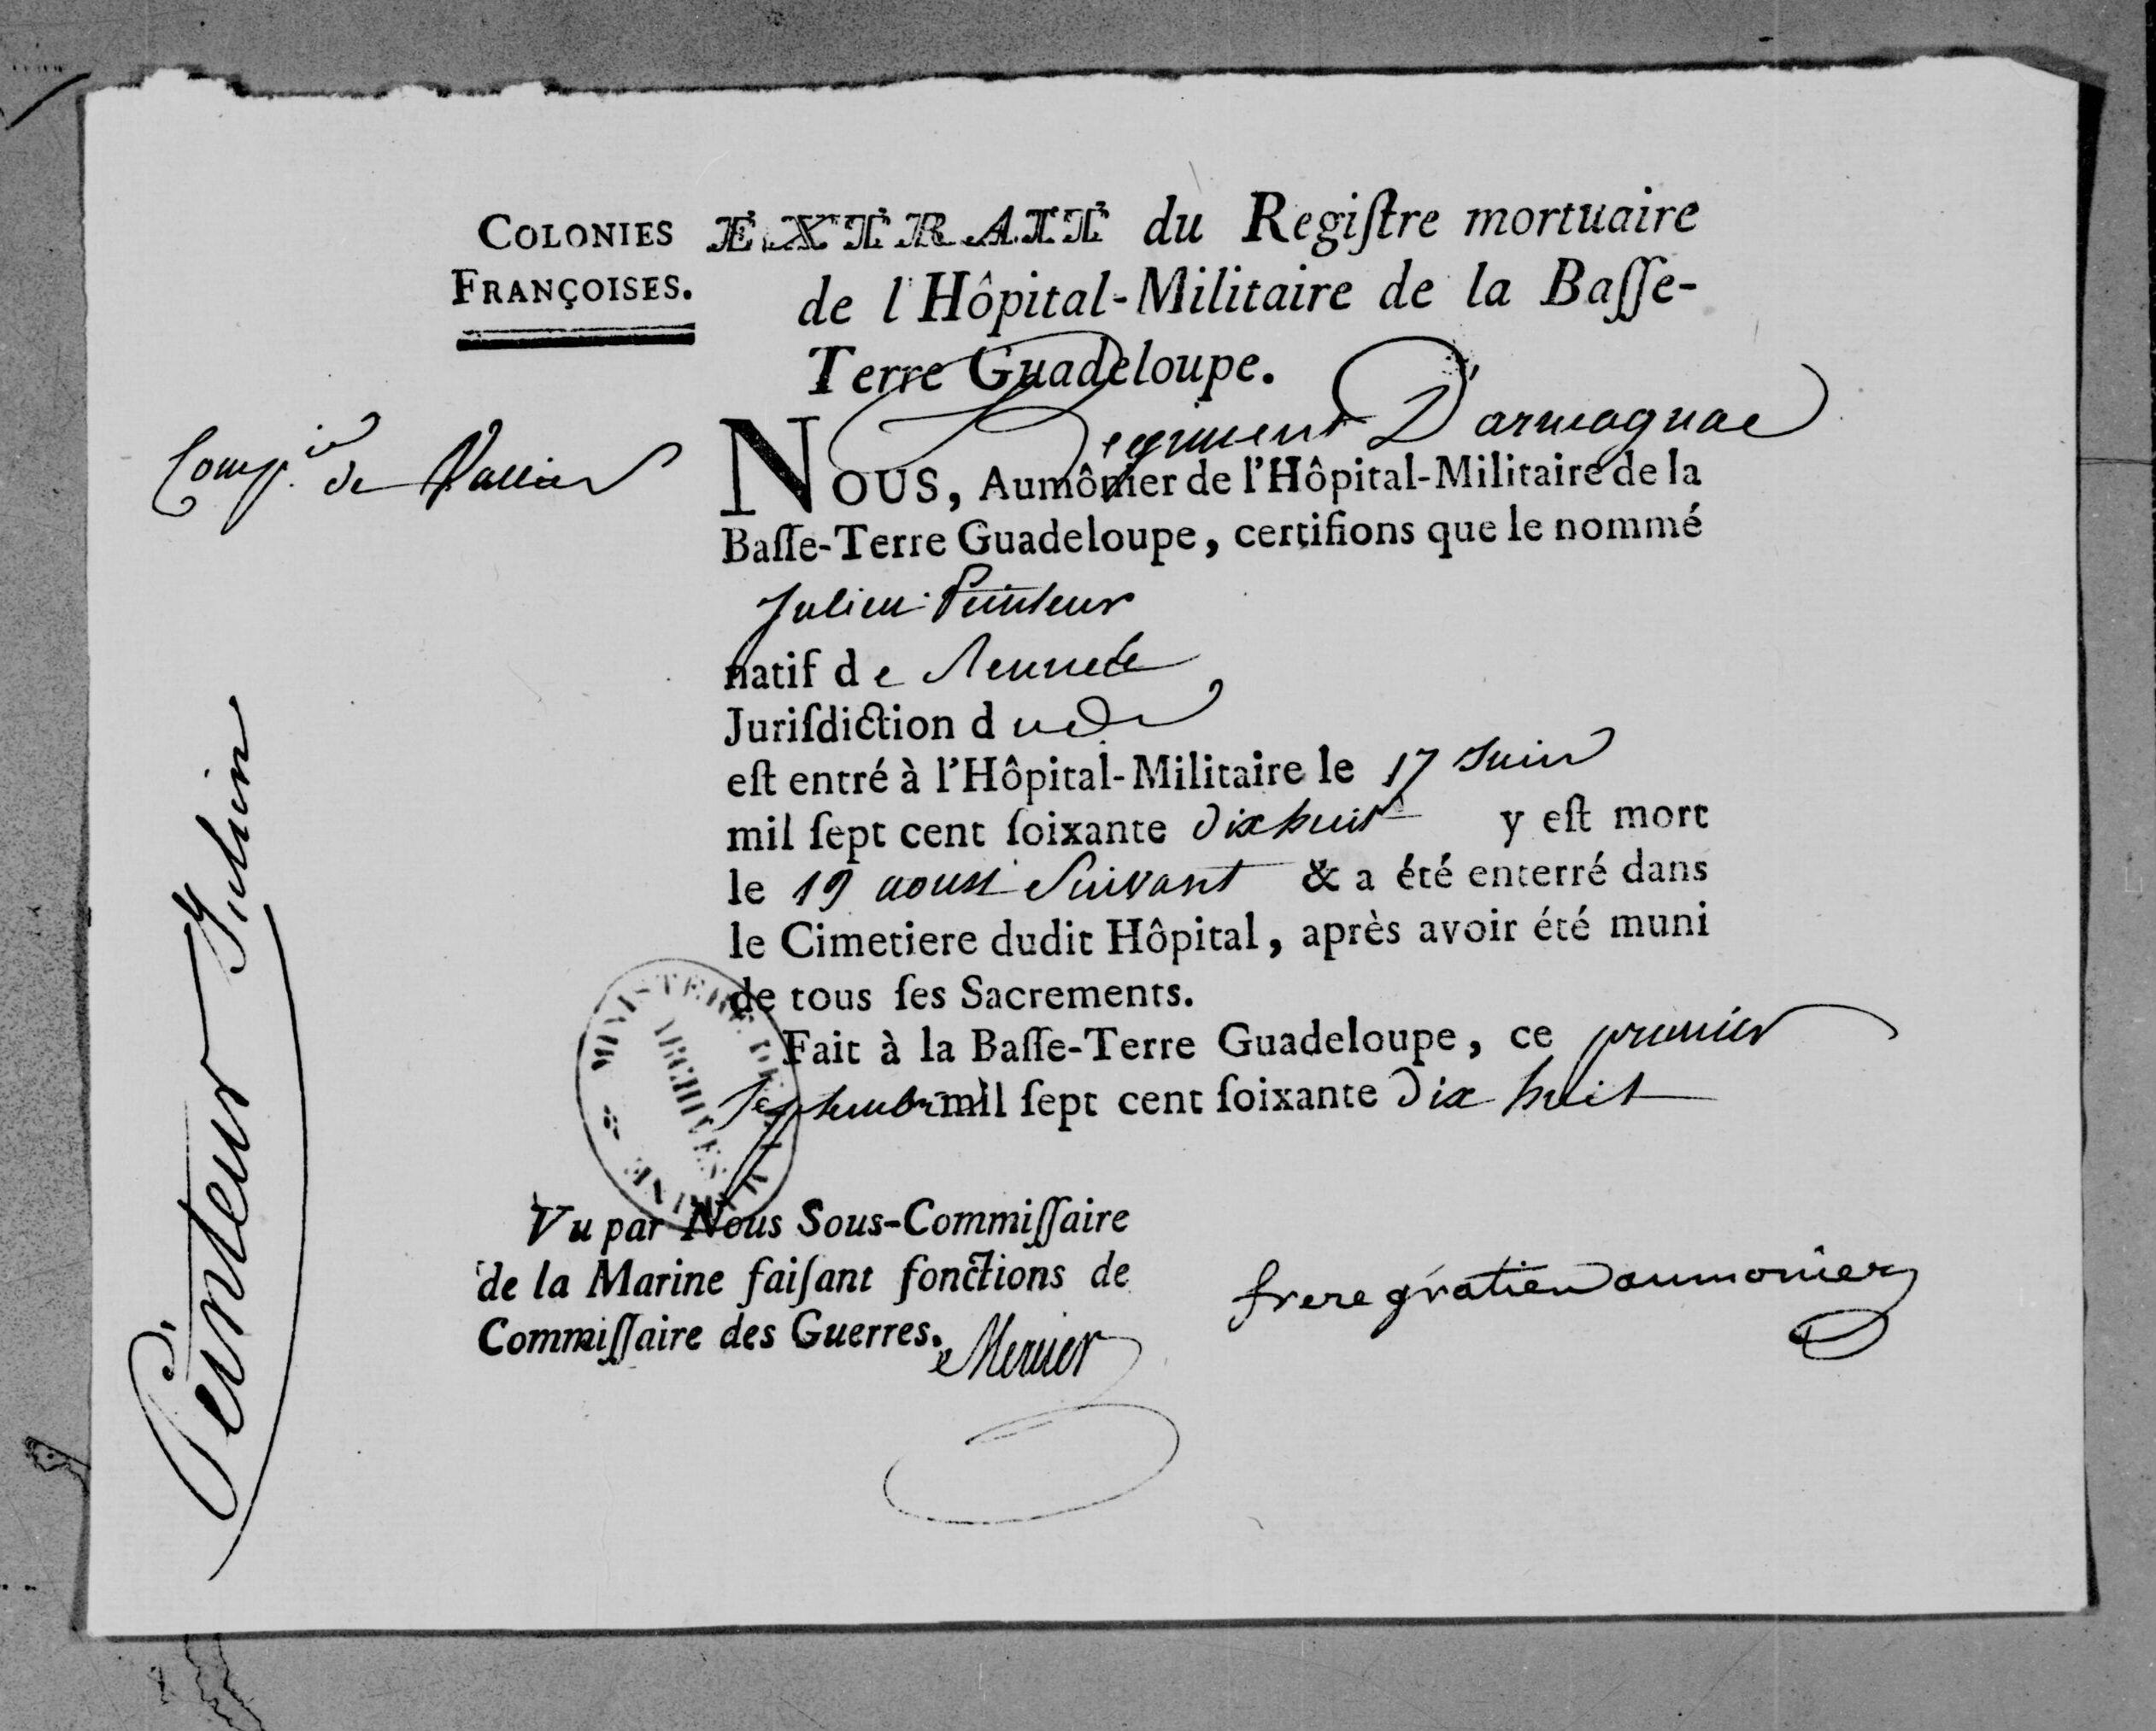 COLONIES
FRANÇOISES.
EXTRAIT du Regiſtre mortuaire
de l'Hôpital-Militaire de la Baſſe-
Terre Guadeloupe.
Regiment D'armagnac
Comp.ie de
NOUS, Aumônier de l'Hôpital-Militaire de la
Baſſe-Terre Guadeloupe, certifions que le nommé
Julien Peinteur
natif de
Juriſdiction du
eſt entré à l'Hôpital-Militaire le 17 Juin
mil ſept cent ſoixante dix huit y eſt mort
le 19 aoust Suivant & a été enterré dans
le Cimetiere dudit Hôpital, après avoir été muni
de tous ſes Sacrements.
Fait à la Baſſe-Terre Guadeloupe, ce premier
Septembre mil ſept cent ſoixante dix huit
MINISTERE DE LA MARINE
ARCHIVES
Vu par Nous Sous-Commiſſaire
de la Marine faiſant fonctions de
Commiſſaire des Guerres.
Mercier
frere gratien aumonier
Peinteur Julien